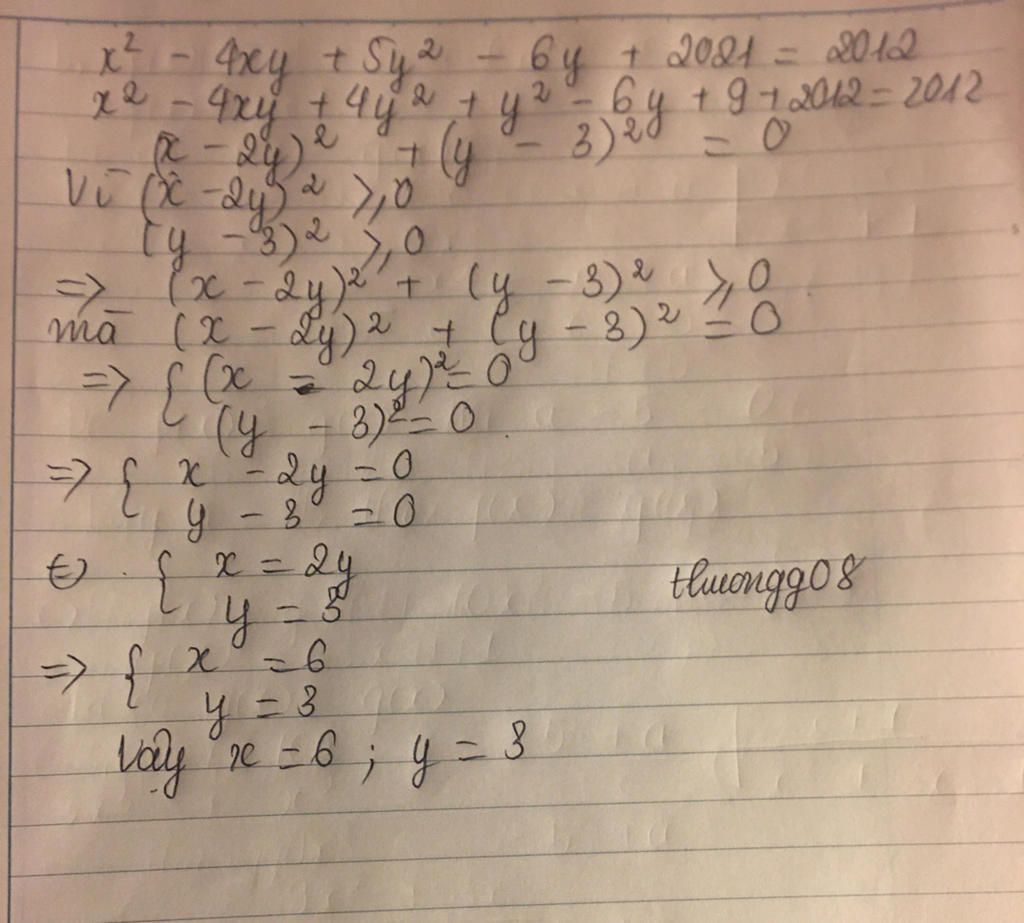 x² - 4xy + 5y² - 6y + 2021 = 2012
x² - 4xy + 4y² + y² - 6y + 9 + 2012 = 2012
(x - 2y)² + (y - 3)² = 0
Vì (x - 2y)² ⩾ 0
(y - 3)² ⩾ 0
=> (x - 2y)² + (y - 3)² ⩾ 0
mà (x - 2y)² + (y - 3)² = 0
=> { (x - 2y)² = 0
(y - 3)² = 0
=> { x - 2y = 0
y - 3 = 0
<=> { x = 2y
y = 3
thuongg08
=> { x = 6
y = 3
Vậy x = 6 ; y = 3